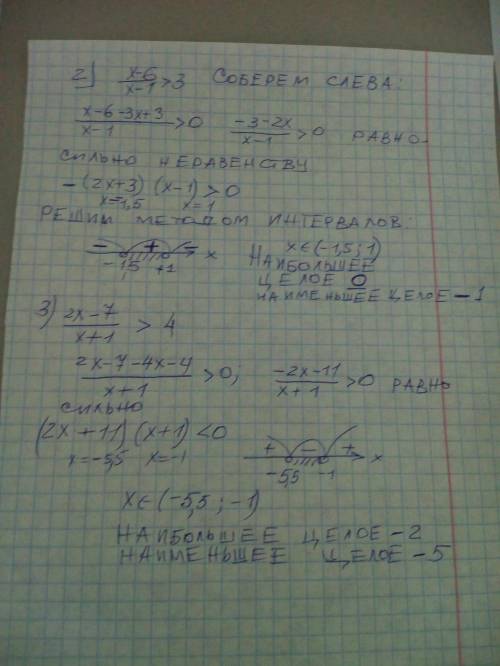 2) (x-6)/(x-1) > 3 СОБЕРЕМ СЛЕВА:
(x-6-3x+3)/(x-1) > 0 (-3-2x)/(x-1) > 0 РАВНО-
СИЛЬНО НЕРАВЕНСТВУ
-(2x+3)(x-1) > 0
x=-1,5 x=1
РЕШИМ МЕТОДОМ ИНТЕРВАЛОВ:
- + - x
-1,5 +1
x∈(-1,5; 1)
НАИБОЛЬШЕЕ
ЦЕЛОЕ 0
НАИМЕНЬШЕЕ ЦЕЛОЕ -1
3) (2x-7)/(x+1) > 4
(2x-7-4x-4)/(x+1) > 0; (-2x-11)/(x+1) > 0 РАВНО
СИЛЬНО
(2x+11)(x+1) < 0
x=-5,5 x=-1
+ - + x
-5,5 -1
x∈(-5,5; -1)
НАИБОЛЬШЕЕ ЦЕЛОЕ -2
НАИМЕНЬШЕЕ ЦЕЛОЕ -5